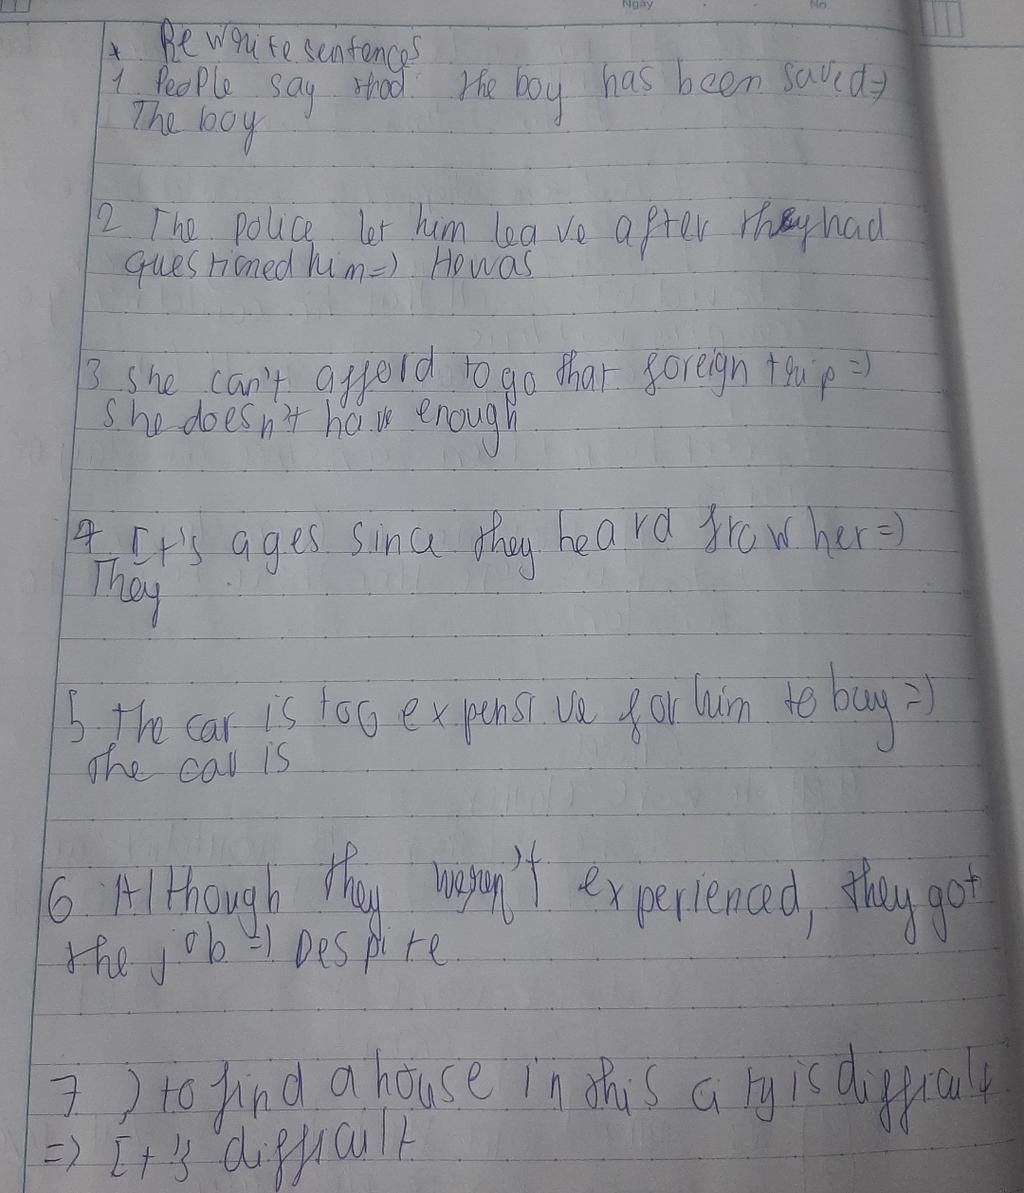 Ngày No
* Rewrite sentences
1 People say thad the boy has been saved =>
The boy
2 The police let him leave after they had
questioned him => He was
3 she can't afford to go that foreign trip =>
she doesn't have enough
4 It's ages since they heard from her =>
They
5 The car is too expensive for him to buy =>
The car is
6 Although they weren't experienced, they got
the job => Despite
7 ) to find a house in this city is difficult
=> It's difficult